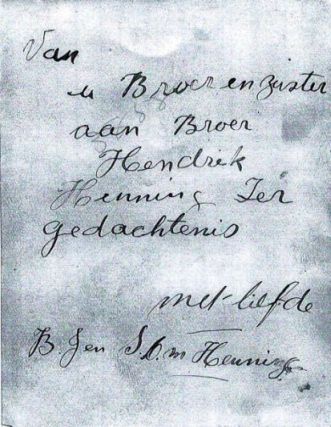 Van
u Broer en zuster
aan Broer
Hendrik
Henning Ter
gedachtenis
met liefde
B. J en S. C. M Henning